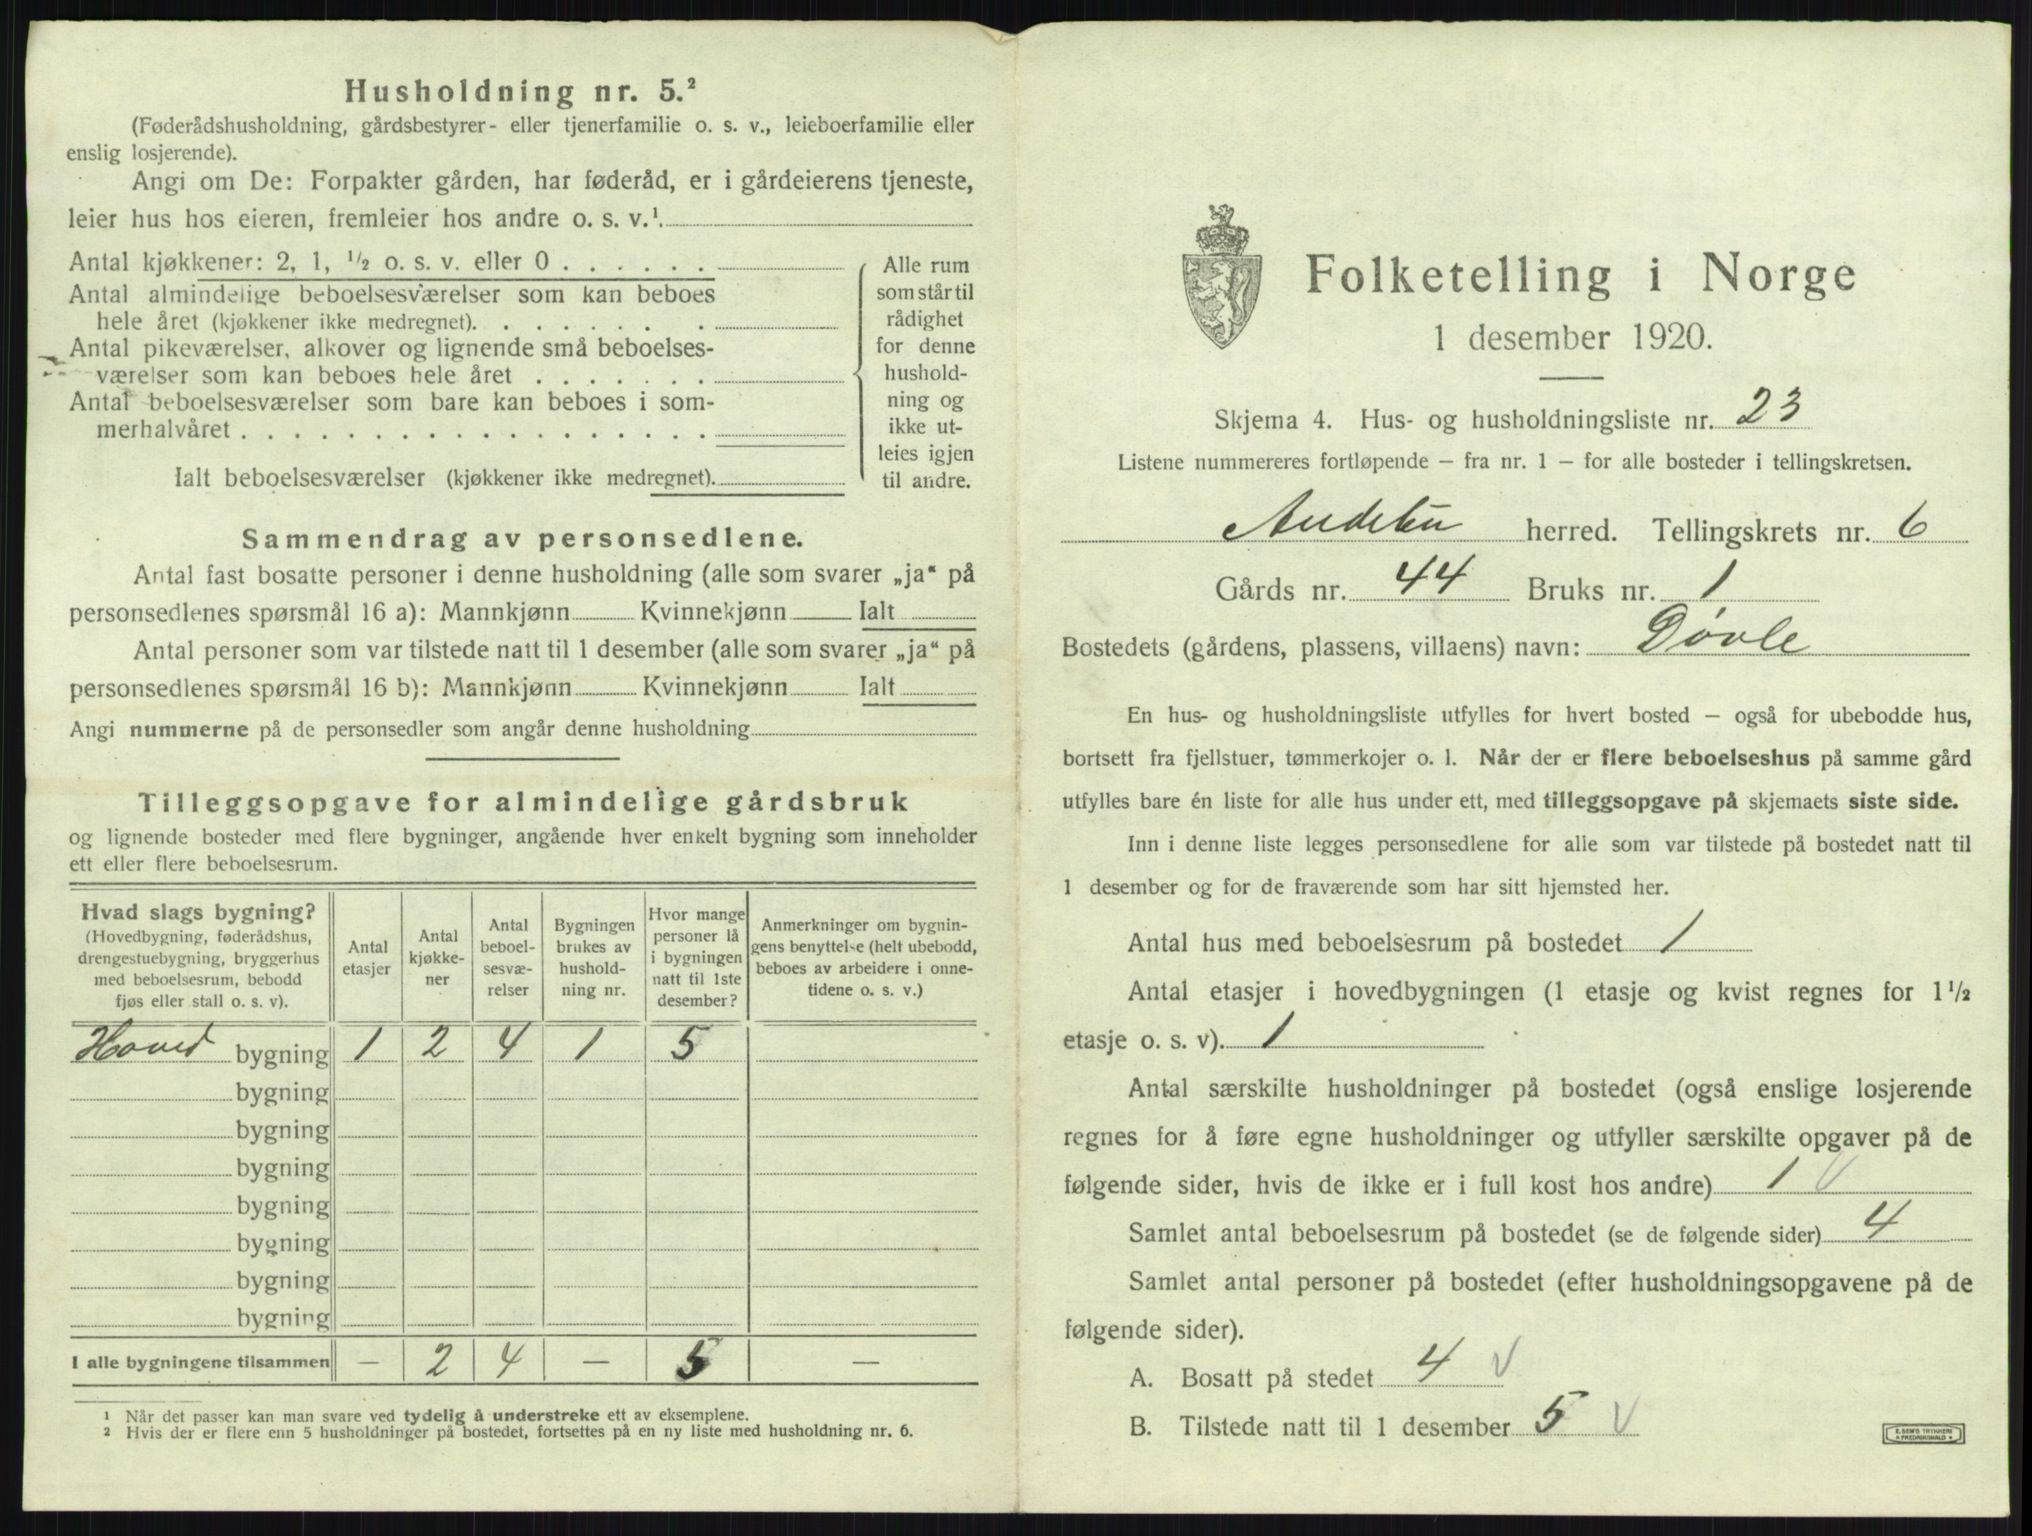 Husholdning nr. 5.²
(Føderådshusholdning, gårdsbestyrer- eller tjenerfamilie o. s. v., leieboerfamilie eller
enslig losjerende).
Angi om De: Forpakter gården, har føderåd, er i gårdeierens tjeneste,
leier hus hos eieren, fremleier hos andre o. s. v.¹.
Antal kjøkkener: 2, 1, ½ o. s. v. eller 0 . . . . . .
Antal almindelige beboelsesværelser som kan beboes
hele året (kjøkkener ikke medregnet). . . . . . . .
Antal pikeværelser, alkover og lignende små beboelses-
værelser som kan beboes hele året . . . . . . .
Antal beboelsesværelser som bare kan beboes i som-
merhalvåret . . . . . . . . . . . . . . . . . .
Ialt beboelsesværelser (kjøkkener ikke medregnet).
Alle rum
som står til
rådighet
for denne
hushold-
ning og
ikke ut-
leies igjen
til andre.
Sammendrag av personsedlene.
Antal fast bosatte personer i denne husholdning (alle som svarer „ja“ på
personsedlenes spørsmål 16 a): Mannkjønn Kvinnekjønn Ialt
Antal personer som var tilstede natt til 1 desember (alle som svarer „ja“ på
personsedlenes spørsmål 16 b): Mannkjønn Kvinnekjønn Ialt
Angi nummerne på de personsedler som angår denne husholdning
Tilleggsopgave for almindelige gårdsbruk
og lignende bosteder med flere bygninger, angående hver enkelt bygning som inneholder
ett eller flere beboelsesrum.
Hvad slags bygning?
(Hovedbygning, føderådshus,
drengestuebygning, bryggerhus
med beboelsesrum, bebodd
fjøs eller stall o. s. v).
Antal
etasjer
Antal
kjøkke-
ner
Antal
beboel-
sesvæ-
relser
Bygningen
brukes av
hushold-
ning nr.
Hvor mange
personer lå
i bygningen
natt til 1ste
desember?
Anmerkninger om bygnin-
gens benyttelse (helt ubebodd,
beboes av arbeidere i onne-
tidene o. s. v.)
Hoved bygning 1 2 4 1 5
bygning
bygning
bygning
bygning
bygning
bygning
bygning
I alle bygningene tilsammen — 2 4 — 5 —
¹ Når det passer kan man svare ved tydelig å understreke ett av eksemplene.
² Hvis der er flere enn 5 husholdninger på bostedet, fortsettes på en ny liste med husholdning nr. 6.
Folketelling i Norge
1 desember 1920.
Skjema 4. Hus- og husholdningsliste nr. 23
Listene nummereres fortløpende — fra nr. 1 — for alle bosteder i tellingskretsen.
Andebu herred. Tellingskrets nr. 6
Gårds nr. 44 Bruks nr. 1
Bostedets (gårdens, plassens, villaens) navn: Døvle
En hus- og husholdningsliste utfylles for hvert bosted — også for ubebodde hus,
bortsett fra fjellstuer, tømmerkojer o. l. Når der er flere beboelseshus på samme gård
utfylles bare én liste for alle hus under ett, med tilleggsopgave på skjemaets siste side.
Inn i denne liste legges personsedlene for alle som var tilstede på bostedet natt til
1 desember og for de fraværende som har sitt hjemsted her.
Antal hus med beboelsesrum på bostedet 1
Antal etasjer i hovedbygningen (1 etasje og kvist regnes for 1½
etasje o. s. v). 1
Antal særskilte husholdninger på bostedet (også enslige losjerende
regnes for å føre egne husholdninger og utfyller særskilte opgaver på de
følgende sider, hvis de ikke er i full kost hos andre) 1 V
Samlet antal beboelsesrum på bostedet (se de følgende sider) 4
Samlet antal personer på bostedet (efter husholdningsopgavene på de
følgende sider).
A. Bosatt på stedet 4 V
B. Tilstede natt til 1 desember 5 V
E. SEM'S TRYKKERI
FREDRIKSHALD